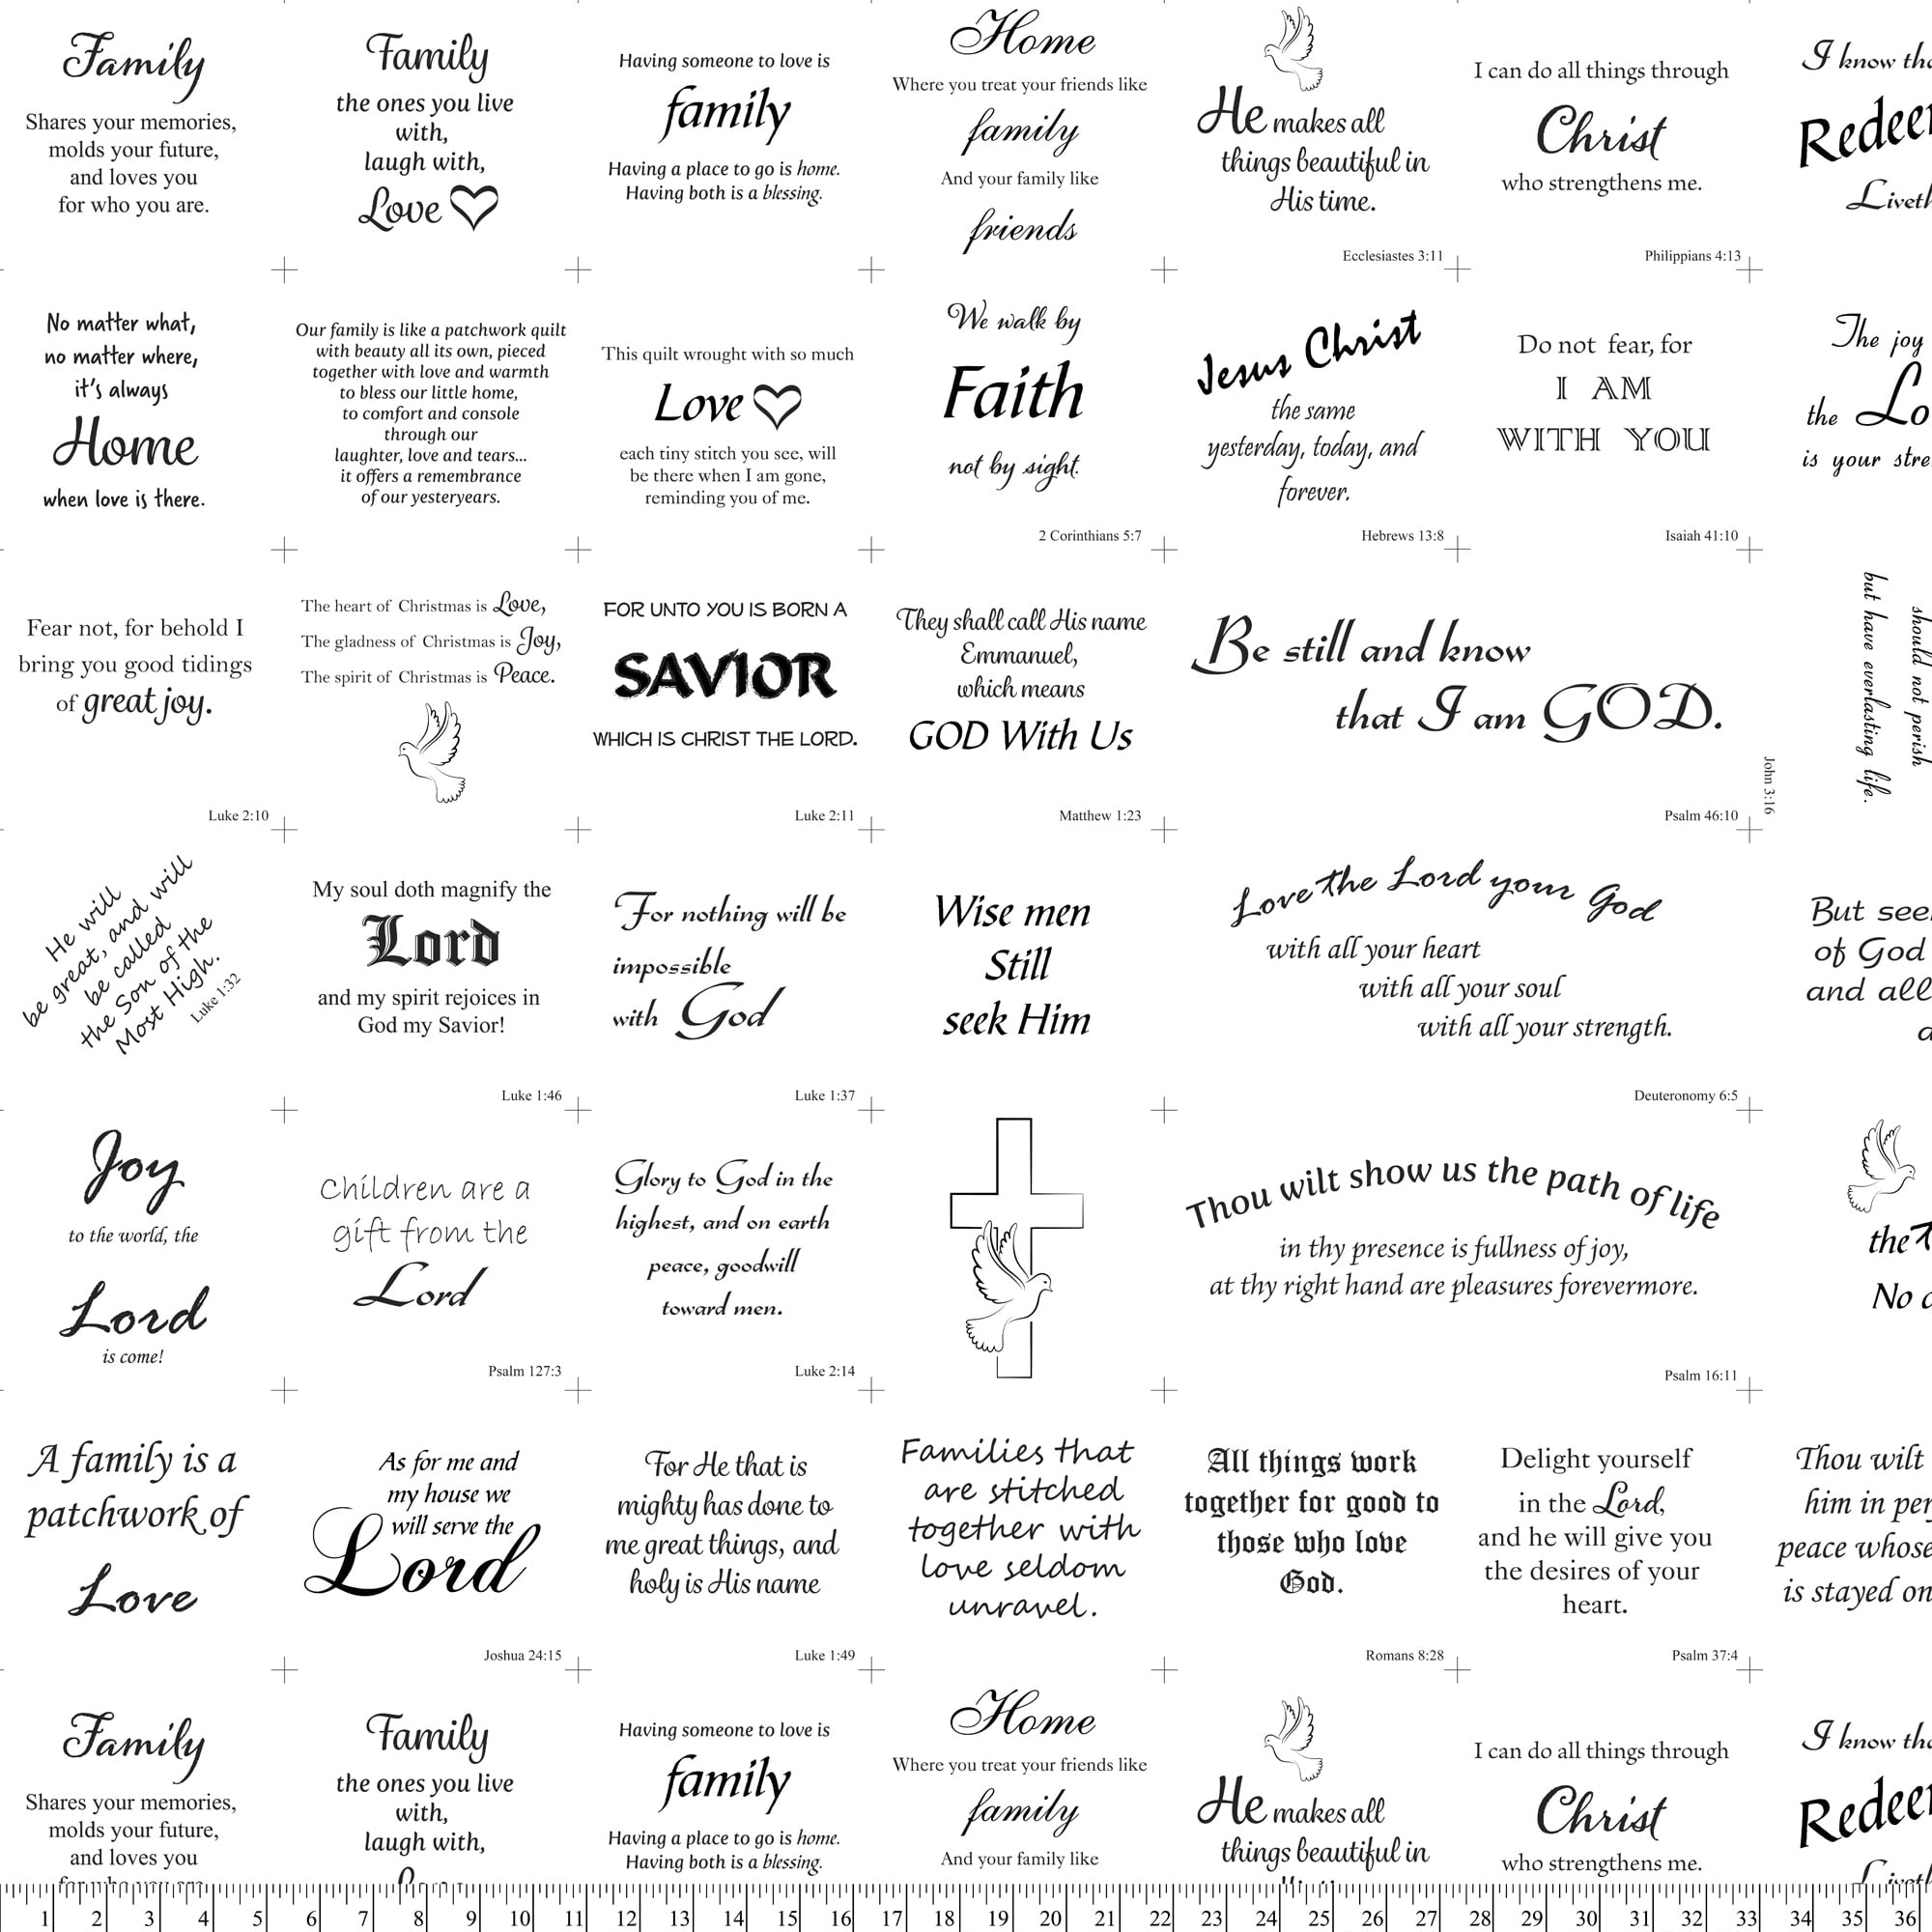 Family
Shares your memories,
molds your future,
and loves you
for who you are.
Family
the ones you live
with,
laugh with,
Love
Having someone to love is
family
Having a place to go is home.
Having both is a blessing.
Home
Where you treat your friends like
family
And your family like
friends
He makes all
things beautiful in
His time.
Ecclesiastes 3:11
I can do all things through
Christ
who strengthens me.
Philippians 4:13
I know
No matter what,
no matter where,
it's always
Home
when love is there.
Our family is like a patchwork quilt
with beauty all its own, pieced
together with love and warmth
to bless our little home,
to comfort and console
through our
laughter, love and tears...
it offers a remembrance
of our yesteryears.
This quilt wrought with so much
Love
each tiny stitch you see, will
be there when I am gone,
reminding you of me.
We walk by
Faith
not by sight.
2 Corinthians 5:7
Jesus Christ
the same
yesterday, today, and
forever.
Hebrews 13:8
Do not fear, for
I AM
WITH YOU
Isaiah 41:10
The joy
the Lo
is your stre
Fear not, for behold I
bring you good tidings
of great joy.
Luke 2:10
The heart of Christmas is Love,
The gladness of Christmas is Joy,
The spirit of Christmas is Peace.
FOR UNTO YOU IS BORN A
SAVIOR
WHICH IS CHRIST THE LORD.
Luke 2:11
They shall call His name
Emmanuel,
which means
GOD With Us
Matthew 1:23
Be still and know
that I am GOD.
Psalm 46:10
should not perish
but have everlasting life.
John 3:16
He will
be great, and will
be called
the Son of the
Most High.
Luke 1:32
My soul doth magnify the
Lord
and my spirit rejoices in
God my Savior!
Luke 1:46
For nothing will be
impossible
with God
Luke 1:37
Wise men
Still
seek Him
Love the Lord your God
with all your heart
with all your soul
with all your strength.
Deuteronomy 6:5
But see
of God
and all
Joy
to the world, the
Lord
is come!
Children are a
gift from the
Lord
Psalm 127:3
Glory to God in the
highest, and on earth
peace, goodwill
toward men.
Luke 2:14
Thou wilt show us the path of life
in thy presence is fullness of joy,
at thy right hand are pleasures forevermore.
Psalm 16:11
the
No
A family is a
patchwork of
Love
As for me and
my house we
will serve the
Lord
Joshua 24:15
For He that is
mighty has done to
me great things, and
holy is His name
Luke 1:49
Families that
are stitched
together with
love seldom
unravel.
All things work
together for good to
those who love
God.
Romans 8:28
Delight yourself
in the Lord,
and he will give you
the desires of your
heart.
Psalm 37:4
Thou wilt
him in per
peace whose
is stayed on
Family
Shares your memories,
molds your future,
and loves you
Family
the ones you live
with,
laugh with,
Having someone to love is
family
Having a place to go is home.
Having both is a blessing.
Home
Where you treat your friends like
family
And your family like
He makes all
things beautiful in
I can do all things through
Christ
who strengthens me.
I know
1 2 3 4 5 6 7 8 9 10 11 12 13 14 15 16 17 18 19 20 21 22 23 24 25 26 27 28 29 30 31 32 33 34 35 36